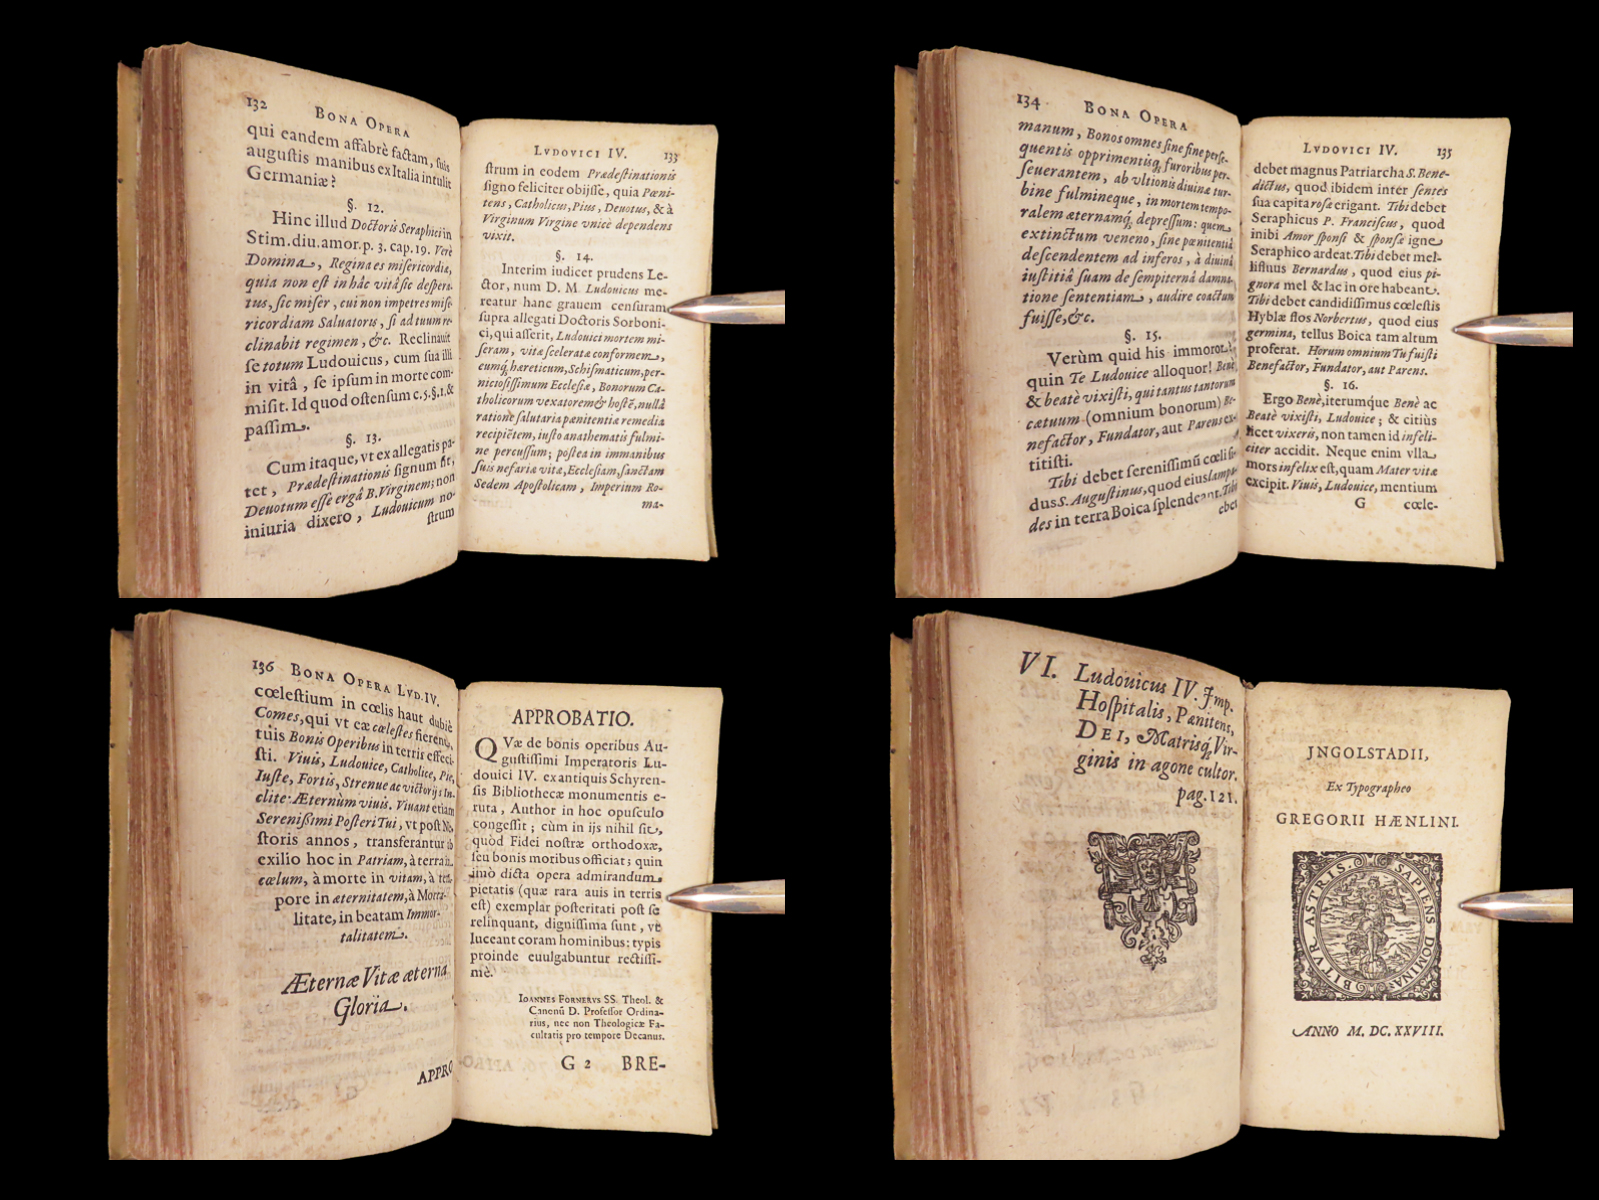 132 BONA OPERA
qui eandem affabrè factam, suis
augustis manibus ex Italia intulit
Germaniæ?
§. 12.
Hinc illud Doctoris Seraphici in
Stim. diu. amor. p. 3. cap. 19. Verè
Domina, Regina es misericordiæ,
quia non est in hâc vitâ sic despera-
tus, sic miser, cui non impetres mise-
ricordiam Saluatoris, si ad tuum re-
clinabit regimen, &c. Reclinauit
se totum Ludouicus, cum sua illi
in vitâ, se ipsum in morte com-
misit. Id quod ostensum c. 5. §. 1. &
passim.
§. 13.
Cum itaque, vt ex allegatis pa-
tet, Prædestinationis signum sit,
Deuotum esse ergâ B. Virginem; non
iniuria dixero, Ludouicum no-
strum
LVDOVICI IV. 133
strum in eodem Prædestinationis
signo feliciter obijsse, quia Pœni-
tens, Catholicus, Pius, Deuotus, & à
Virginum Virgine vnicè dependens
vixit.
§. 14.
Interim iudicet prudens Le-
ctor, num D. M. Ludouicus me-
reatur hanc grauem censuram
supra allegati Doctoris Sorboni-
ci, qui asserit, Ludouici mortem mi-
seram, vitæ sceleratæ conformem,
eumq́; hæreticum, Schismaticum, per-
niciosissimum Ecclesiæ, Bonorum Ca-
tholicorum vexatorem & hostē, nullâ
ratione salutaria pœnitentiæ remedia
recipiētem, iusto anathematis fulmi-
ne percussum; postea in immanibus
suis nefariæ vitæ, Ecclesiam, sanctam
Sedem Apostolicam, Imperium Ro-
ma-
134 BONA OPERA
manum, Bonos omnes sine fine perse-
quentis opprimentisq́; furoribus per-
seuerantem, ab vltionis diuinæ tur-
bine fulmineque, in mortem tempo-
ralem æternamq́; depressum: quem
extinctum veneno, sine pœnitentiâ
descendentem ad inferos, à diuinâ
iustitiâ suam de sempiternâ damna-
tione sententiam, audire coactum
fuisse, &c.
§. 15.
Verùm quid his immoror?
quin Te Ludouice alloquor! Benè
& beatè vixisti, qui tantus tantorum
cætuum (omnium bonorum) Be-
nefactor, Fundator, aut Parens ex-
titisti.
Tibi debet serenissimū cœli si-
dus S. Augustinus, quod eius lampa-
des in terra Boica splendeant. Tibi
ebet
LVDOVICI IV. 135
debet magnus Patriarcha S. Bene-
dictus, quod ibidem inter sentes
sua capita rosæ erigant. Tibi debet
Seraphicus P. Franciscus, quod
inibi Amor sponsi & sponsæ igne
Seraphico ardeat. Tibi debet mel-
lifluus Bernardus, quod eius pi-
gnora mel & lac in ore habeant.
Tibi debet candidissimus cœlestis
Hyblæ flos Norbertus, quod eius
germina, tellus Boica tam altum
proferat. Horum omnium Tu fuisti
Benefactor, Fundator, aut Parens.
§. 16.
Ergo Benè, iterumque Benè ac
Beatè vixisti, Ludouice; & citiùs
licet vixeris, non tamen id infeli-
citer accidit. Neque enim vlla
mors infelix est, quam Mater vitæ
excipit. Viuis, Ludouice, mentium
G cœle-
136 BONA OPERA LVD. IV.
cœlestium in cœlis haut dubiè
Comes, qui vt eæ cœlestes fierent,
tuis Bonis Operibus in terris effeci-
sti. Viuis, Ludouice, Catholice, Pie,
Iuste, Fortis, Strenue ac victorijs In-
clite: Æternùm viuis. Viuant etiam
Serenissimi Posteri Tui, vt post Ne-
storis annos, transferantur ab
exilio hoc in Patriam, à terra in
cœlum, à morte in vitam, à tem-
pore in æternitatem, à Morta-
litate, in beatam Immor-
talitatem.
Æternæ Vitæ æterna
Gloria.
APPRO
APPROBATIO.
QVæ de bonis operibus Au-
gustissimi Imperatoris Lu-
douici IV. ex antiquis Schyren-
sis Bibliothecæ monumentis e-
ruta, Author in hoc opusculo
congessit; cùm in ijs nihil sit,
quòd Fidei nostræ orthodoxæ,
seu bonis moribus officiat; quin
imò dicta opera admirandum
pietatis (quæ rara auis in terris
est) exemplar posteritati post se
relinquant, dignissima sunt, vt
luceant coram hominibus: typis
proinde euulgabuntur rectissi-
mè.
IOANNES FORNERVS SS. Theol. &
Canonū D. Professor Ordina-
rius, nec non Theologicæ Fa-
cultatis pro tempore Decanus.
G 2 BRE-
VI. Ludouicus IV. Imp.
Hospitalis, Pœnitens,
DEI, Matrisq́; Vir-
ginis in agone cultor.
pag. 121.
JNGOLSTADII,
Ex Typographeo
GREGORII HÆNLINI.
SAPIENS DOMINABITVR ASTRIS.
ANNO M. DC. XXVIII.